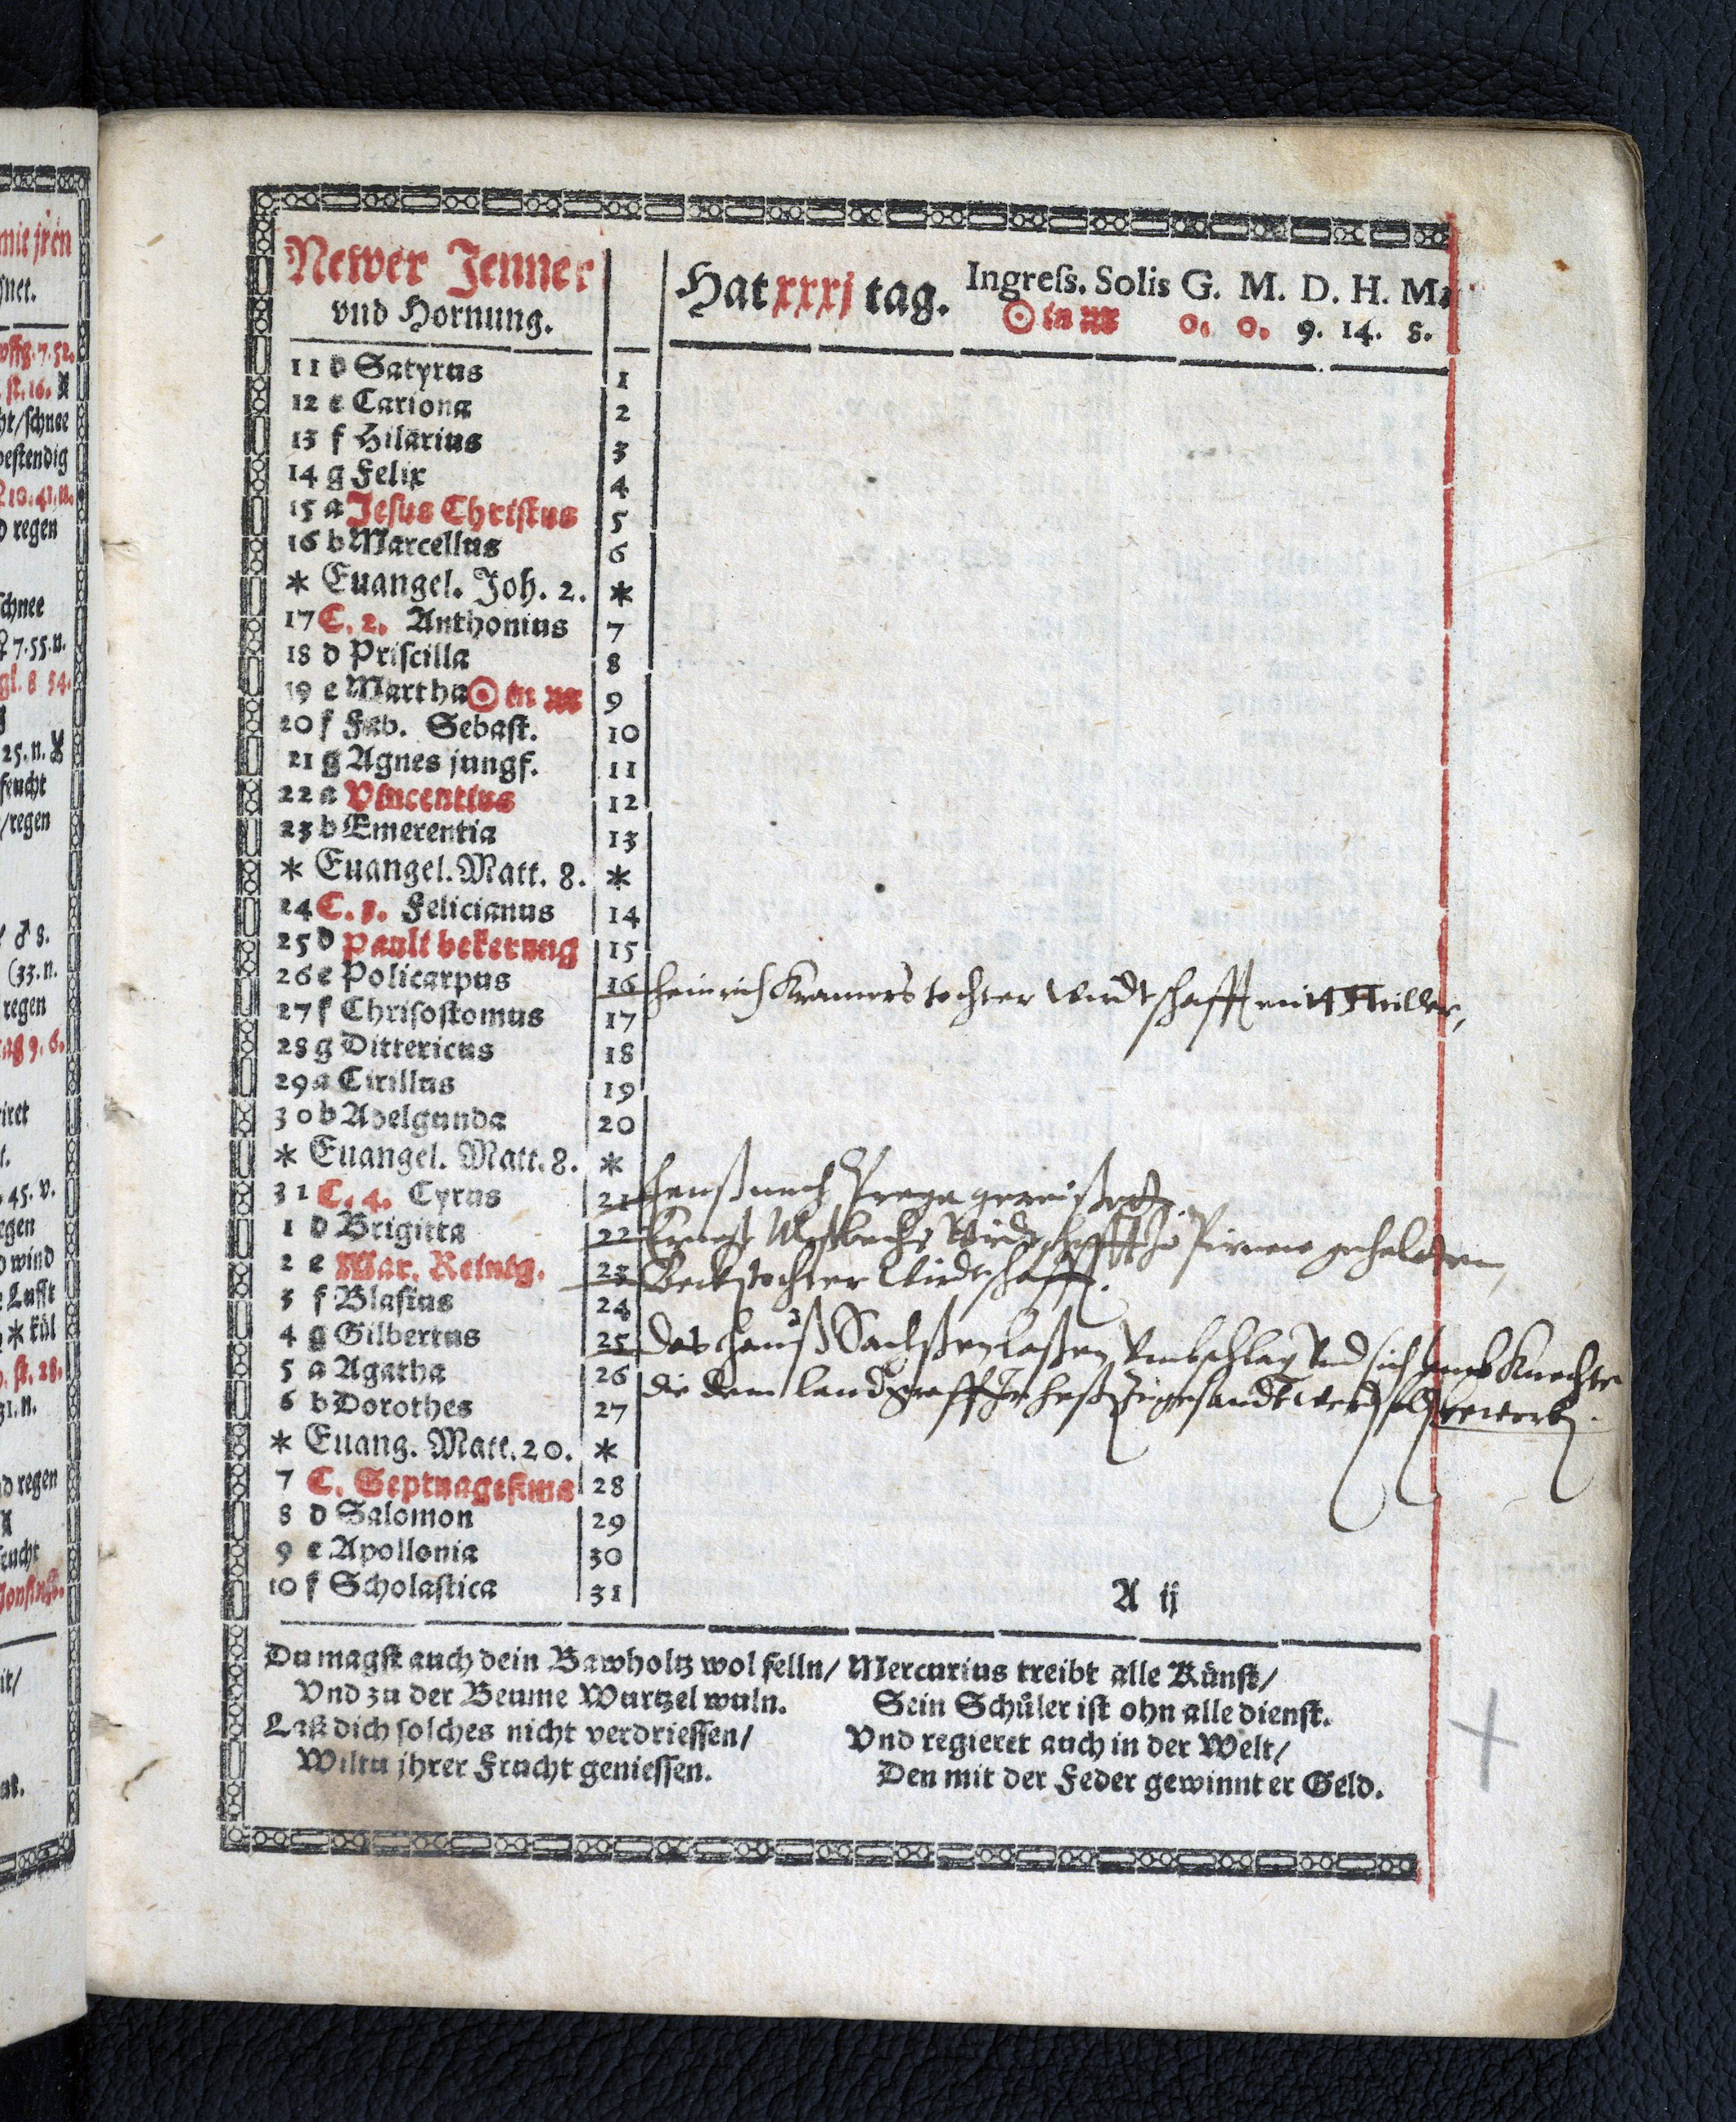 Newer Jenner
vnd Hornung.
Hat xxxj tag.
Ingreſs. Solis G. M. D. H. M.
☉ in ♒ 0. 0. 9. 14. 8.
11 d Satyrus 1
12 e Cariona 2
13 f Hilarius 3
14 g Felix 4
15 a Jeſus Chriſtus 5
16 b Marcellus 6
* Euangel. Joh. 2. *
17 C. 2. Anthonius 7
18 d Priſcilla 8
19 e Martha ☉ in ♒ 9
20 f Fab. Sebaſt. 10
21 g Agnes jungf. 11
22 a Vincentius 12
23 b Emerentia 13
* Euangel. Matt. 8. *
24 C. 3. Felicianus 14
25 d Pauli bekerung 15
26 e Policarpus 16 Heinrich Kramers tochter Wirdtschafft mitt
27 f Chriſoſtomus 17
28 g Dittericus 18
29 a Cirillus 19
30 b Adelgunda 20
* Euangel. Matt. 8. *
31 C. 4. Cyrus 21 nach Praga gereißet
1 d Brigitta 22 Ernst Wirdtschafft zu Pirnaw gehalten,
2 e Mar. Reinig. 23 tochter Wirdtschafft.
3 f Blaſius 24
4 g Gilbertus 25 Das Hauß Sachßen laßen Umbschlag Und sich umb Knechte
5 a Agatha 26 die dem landgraff Zu heßen zugesandt werden sollen beworben.
6 b Dorothes 27
* Euang. Matt. 20. *
7 C. Septuageſima 28
8 d Salomon 29
9 e Apollonia 30
10 f Scholaſtica 31
A ij
Du magſt auch dein Bawholtz wol felln/
Vnd zu der Beume Wurtzel wuln.
Laß dich ſolches nicht verdrieſſen/
Wiltu jhrer Frucht genieſſen.
Mercurius treibt alle Künſt/
Sein Schůler iſt ohn alle dienſt.
Vnd regieret auch in der Welt/
Den mit der Feder gewinnt er Geld.